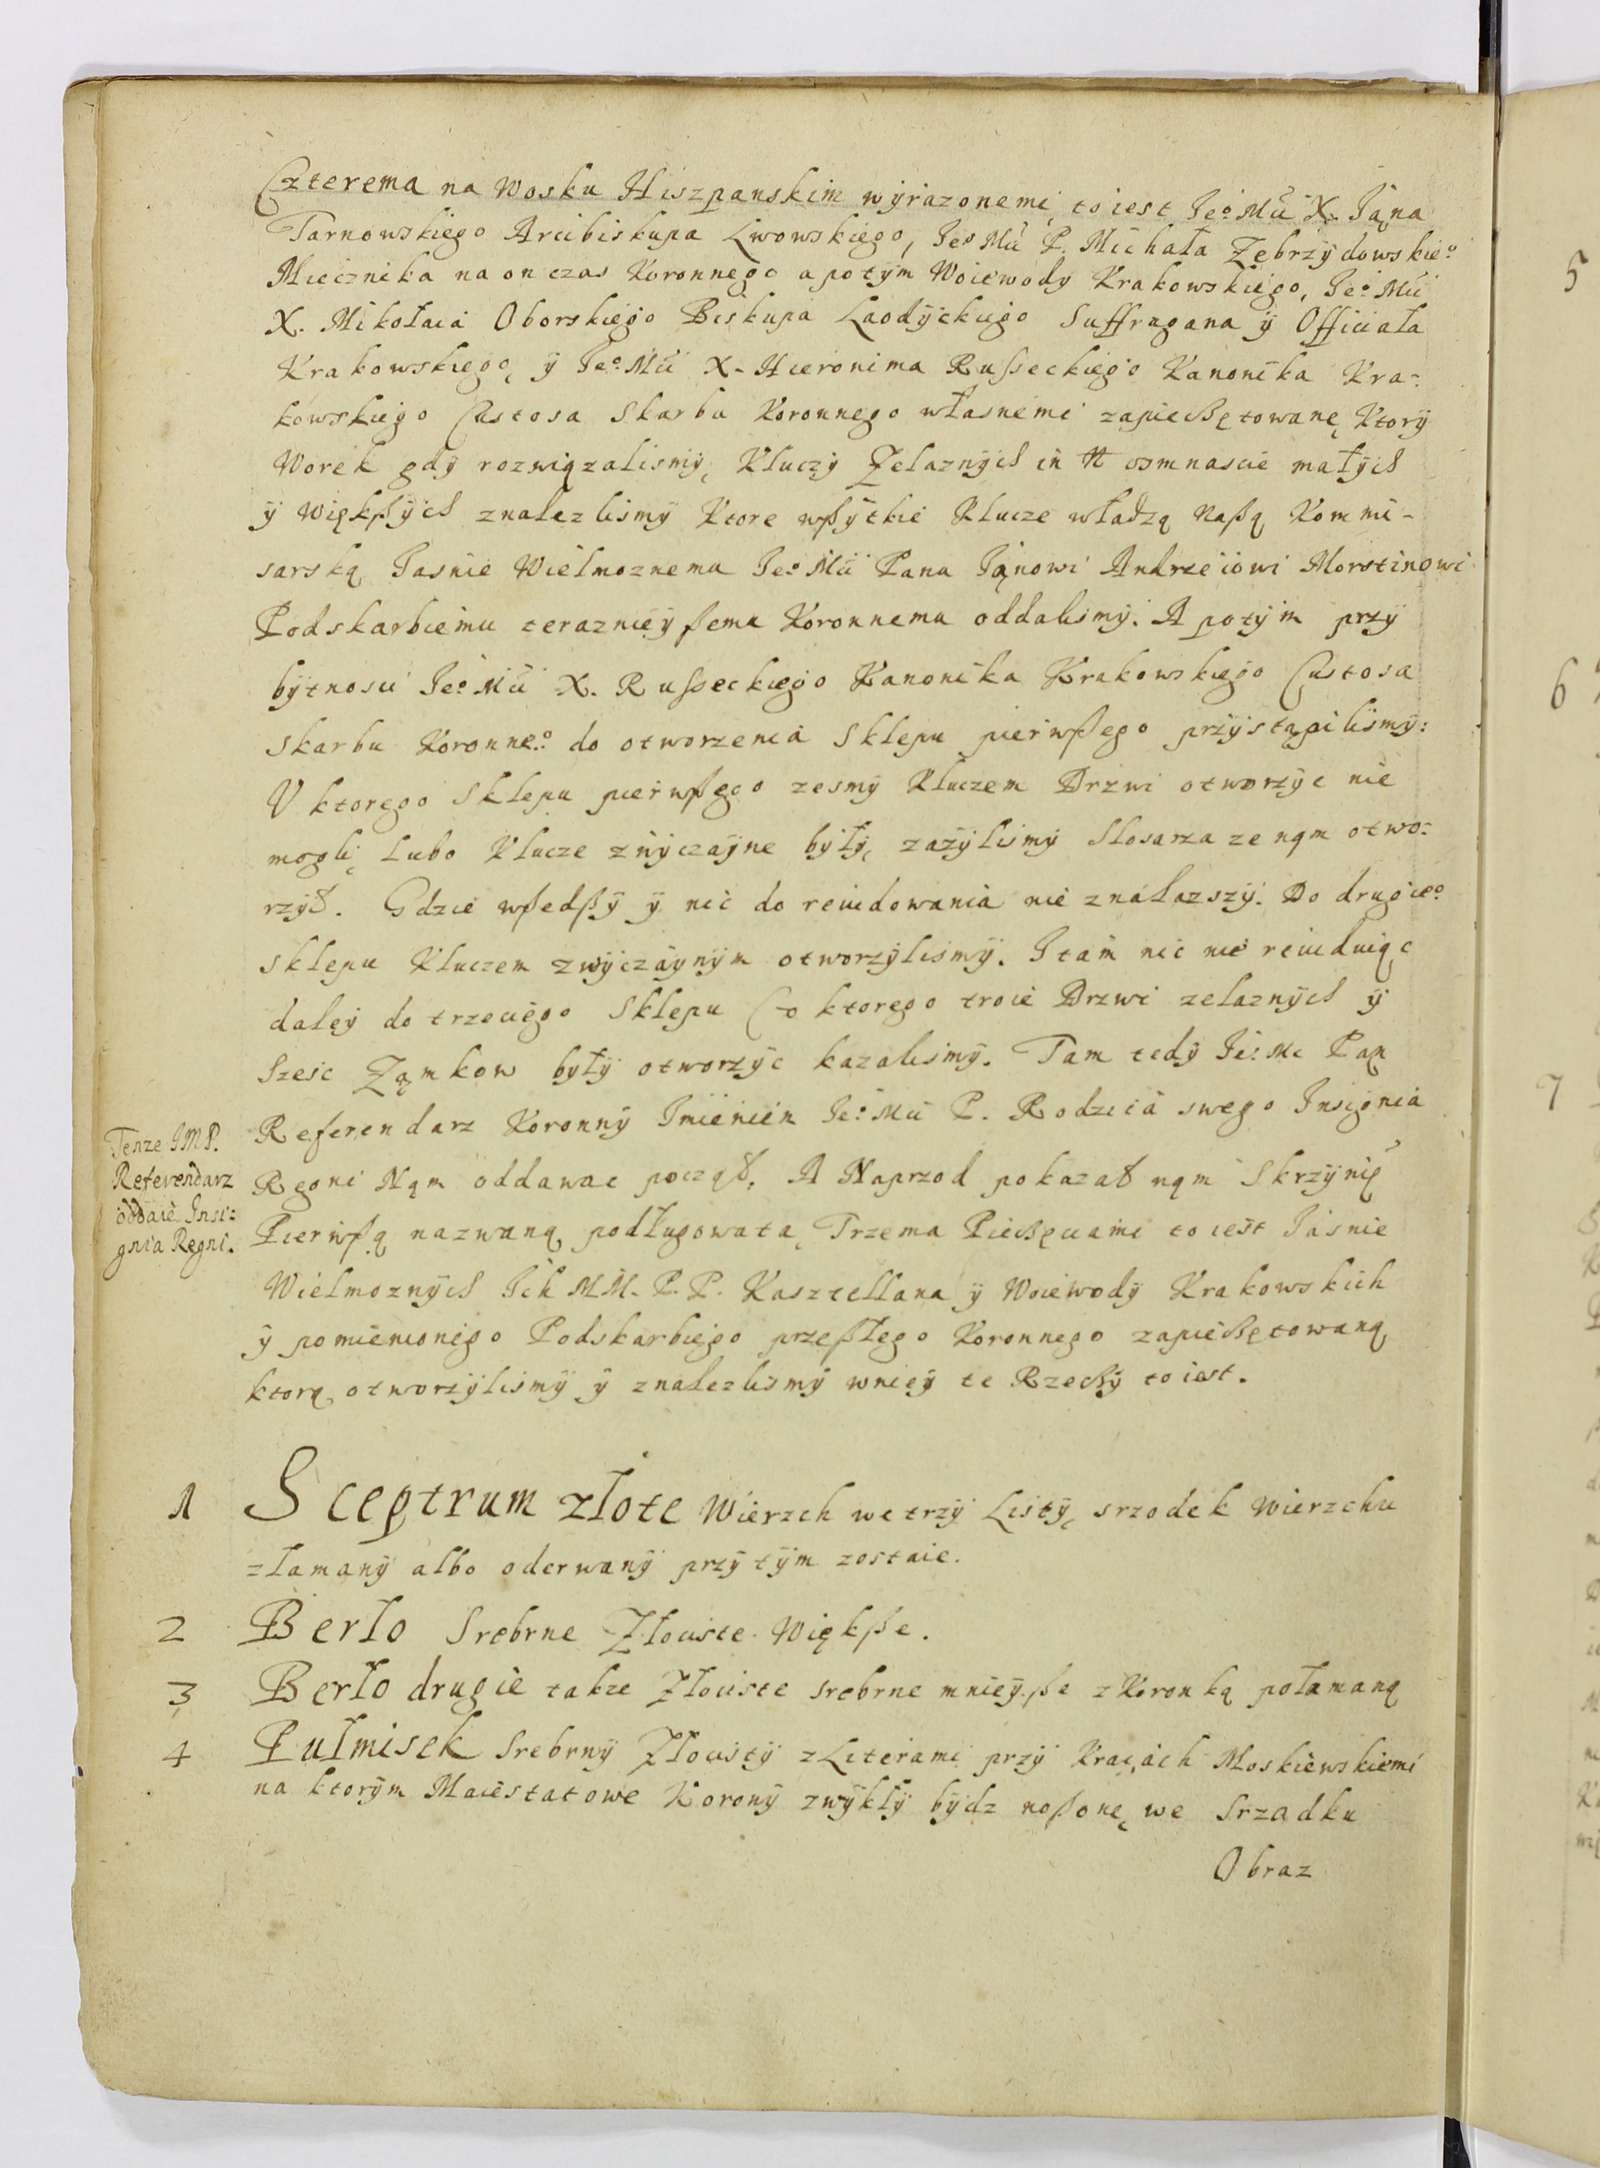 Czterema na Wosku Hiszpanskim wyrazonemi, to iest Jeo Mci X. Jąna
Tarnowskiego Arcibiskupa Lwowskiego, Jeo Mci P. Michała Zebrzydowskieo
Miecznika na on czas Koronnego a potym Woiewody Krakowskiego, Jeo Mci
X. Mikołaia Oborskiego Biskupa Laodyckiego Suffragana y Officiała
Krakowskiego, y Jeo Mci X. Hieronima Rußeckiego Kanonika Kra-
kowskiego Custosa Skarbu Koronnego własnemi zapieczętowanę, Ktory
Worek gdy rozwiązalismy, Kluczy Zelaznych in N osmnascie małych
y Więkßych znalezlismy Ktore wßytkie Klucze władzą Naßą Kommi-
sarską Jasnie Wielmoznemu Jeo Mci Panu Jąnowi Andrzeiowi Morstinowi
Podskarbiemu teraznieyßemu Koronnemu oddalismy. A potym przy
bytnosci Jeo Mci X. Rußeckiego Kanonika Krakowskiego Custosa
Skarbu Koronneo do otworzenia Sklepu pierwßego przystąpilismy:
U ktorego Sklepu pierwßego zesmy Kluczem Drzwi otworzyc nie
mogli, lubo Klucze zwyczayne były, zazylismy Slosarza ze nąm otwo-
rzył. Gdzie wßedßy y nic do rewidowania nie znalazszy. Do drugieo
Sklepu Kluczem zwyczaynym otworzylismy. I tam nic nie rewiduiąc
daley do trzeciego Sklepu Co ktorego troie Drzwi zelaznych y
Szesc Ząmkow były otworzyc kazalismy. Tam tedy Jeo Mc Pąn
Referendarz Koronny Imieniem Jeo Mci P. Rodzica swego Insignia
Regni Nąm oddawac począł, A Naprzod pokazał nąm Skrzynię
Pierwßą nazwaną podługowata, Trzema Pieczęciami to iest Jasnie
Wielmoznych Ich MM. P.P. Kasztellana y Woiewody Krakowskich
y pomienionego Podskarbiego przeßłego Koronnego zapieczętowaną
ktorą otworzylismy y znalezlismy w niey te Rzeczy to iest.
Tenze JMP.
Referendarz
oddaie Insi-
gnia Regni.
1 Sceptrum złote Wierzch we trzy Listy, srzodek Wierzchu
złamany albo oderwany przytym zostaie.
2 Berło Srebrne Złociste Więkße.
3 Berło drugie takze Złociste srebrne mnieyße z Koronką połamaną
4 Pułmisek Srebrny Złocisty z Literami przy Kraiach Moskiewskiemi
na ktorym Maiestatowe Korony zwykły bydz noßone, we Srzadku
Obraz
5
6
7